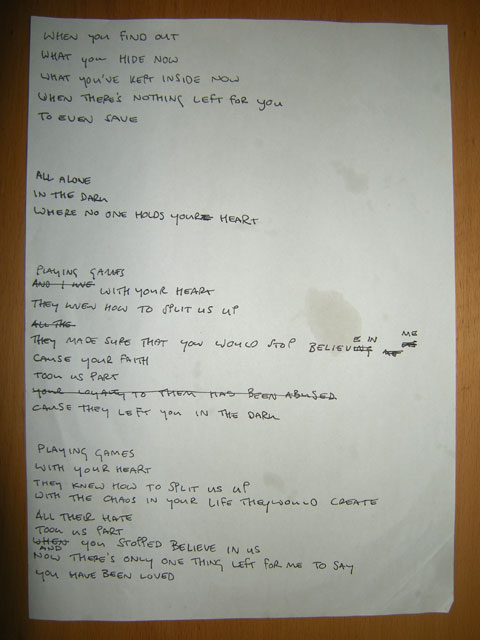 WHEN YOU FIND OUT
WHAT YOU HIDE NOW
WHAT YOU'VE KEPT INSIDE NOW
WHEN THERE'S NOTHING LEFT FOR YOU
TO EVEN SAVE
ALL ALONE
IN THE DARK
WHERE NO ONE HOLDS YOUR HEART
PLAYING GAMES
AND I WITH YOUR HEART
THEY KNEW HOW TO SPLIT US UP
ALL THE
THEY MADE SURE THAT YOU WOULD STOP BELIEV E IN ME
CAUSE YOUR FAITH
TOOK US PART
YOUR LOYALTY TO THEM HAS BEEN ABUSED
CAUSE THEY LEFT YOU IN THE DARK
PLAYING GAMES
WITH YOUR HEART
THEY KNEW HOW TO SPLIT US UP
WITH THE CHAOS IN YOUR LIFE THEY WOULD CREATE
ALL THEIR HATE
TOOK US PART
WHEN YOU STOPPED BELIEVE IN US
AND
NOW THERE'S ONLY ONE THING LEFT FOR ME TO SAY
YOU HAVE BEEN LOVED